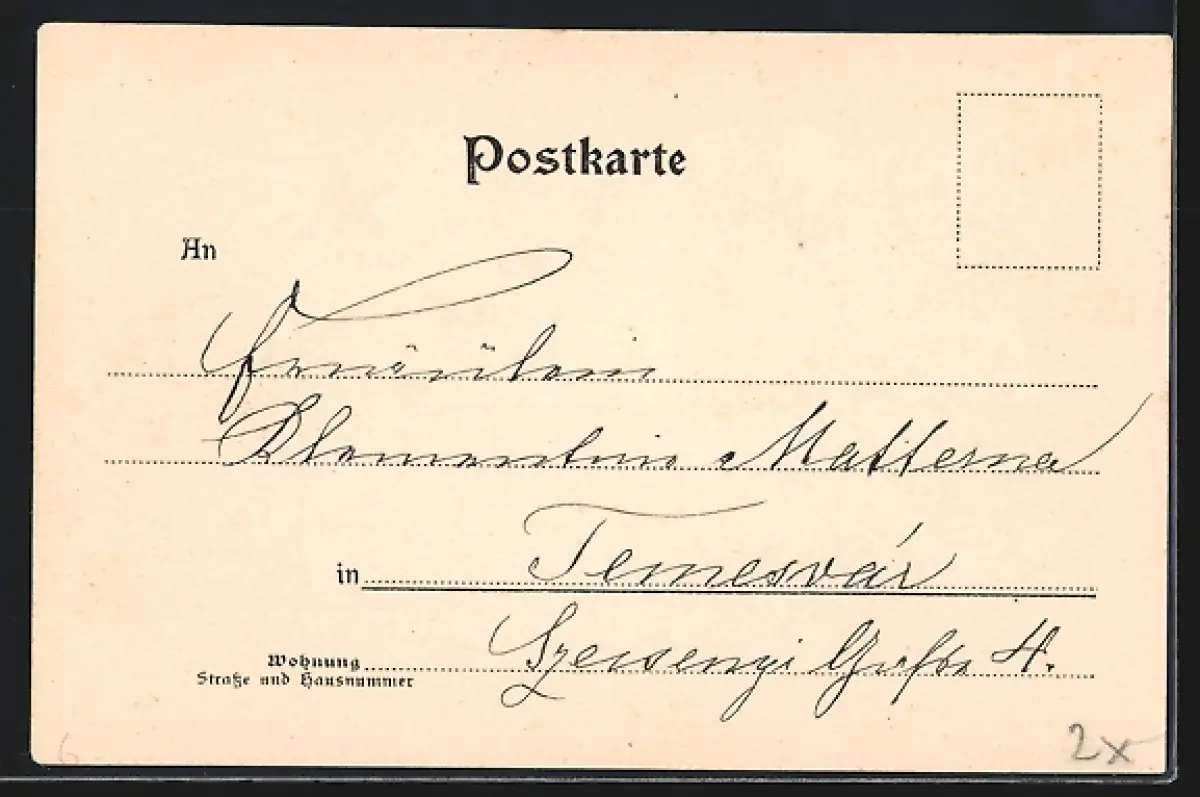 Postkarte
An
Fräulein
Klementine Matterna
in Temesvár
Wohnung
Straße und Hausnummer
Szecsenyi Gasse 4.
2x
6